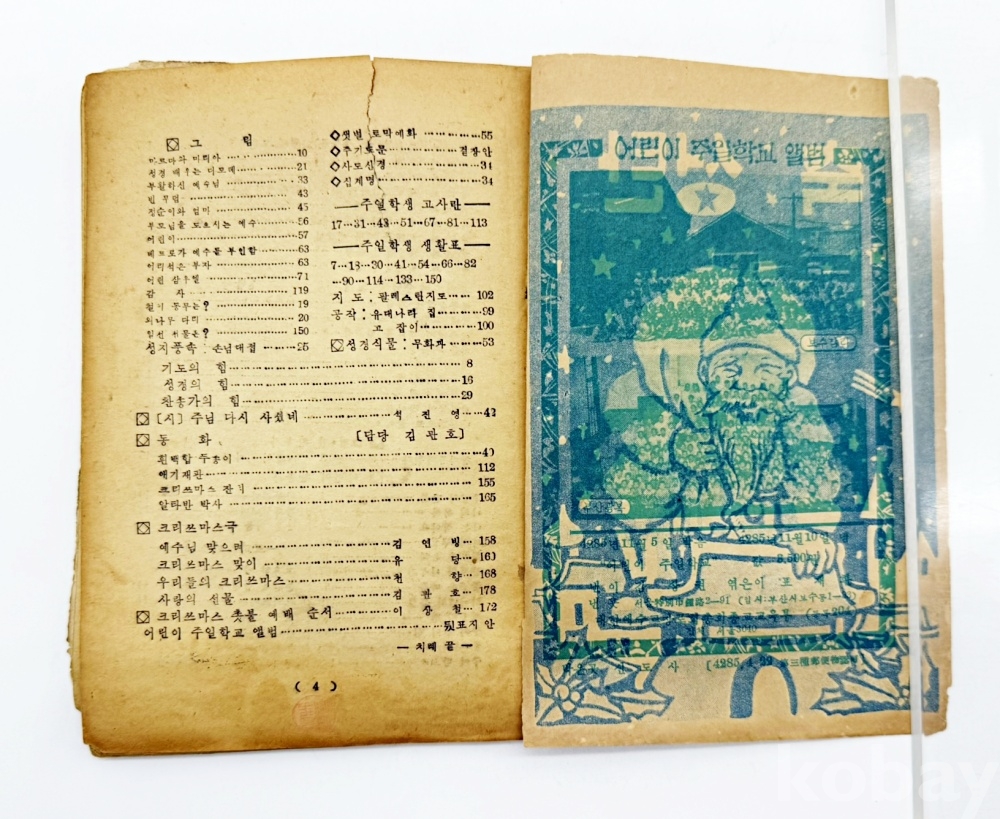 그 림
마르다와 마리아 10
성경 배우는 디모데 21
부활하신 예수님 33
빈 무덤 43
정순이와 엄마 45
부모님을 모르시는 예수 56
어린이 57
베드로가 예수를 부인함 63
어리석은 부자 63
어린 삼우엘 71
감 자 119
웬지 동무는? 19
외나무 다리 20
힘선 선물은? 150
성지풍속 : 손님대접 25
◇샛별 토막예화 55
◇주기도문 겉장안
◇사도신경 34
◇십계명 34
주일학생 고사란
17 31 48 51 67 81 113
주일학생 생활표
7 18 30 41 54 66 82
90 114 133 150
지 도 : 팔레스틴지도 102
공작 : 유대나라 집 99
고 잡이 100
성경식물 : 무화과 53
기도의 힘 8
성경의 힘 16
찬송가의 힘 29
[시] 주님 다시 사셨네 석 진 영 42
동 화 [담당 김관호]
흰백합 주홍이 40
얘기재판 112
크리쓰마스 잔치 155
알타반 박사 165
크리쓰마스극
예수님 맞으러 김 연 빙 158
크리쓰마스 맞이 유 당 160
우리들의 크리쓰마스 천 향 168
사랑의 선물 김 관 호 178
크리쓰마스 촛불 예배 순서 이 장 철 172
어린이 주일학교 앨범 뒷표지안
— 치례 끝 —
( 4 )
어린이 주일학교 앨범
4285년11월5일 4285년11월10일
어린이 주일학교 8,500
엮은이
[4285.4.29 第三種郵便物
kobay